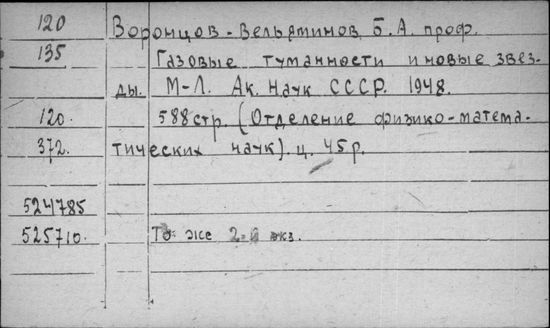 120 Воронцов-Вельяминов Б. А. проф.
135 Газовые туманности и новые звез-
ды. М-Л. Ак. Наук СССР. 1948.
120. 588 стр. (Отделение физико-матема-
372. тических наук). ц. 45 р.
524785
525710. То же 2-й экз.